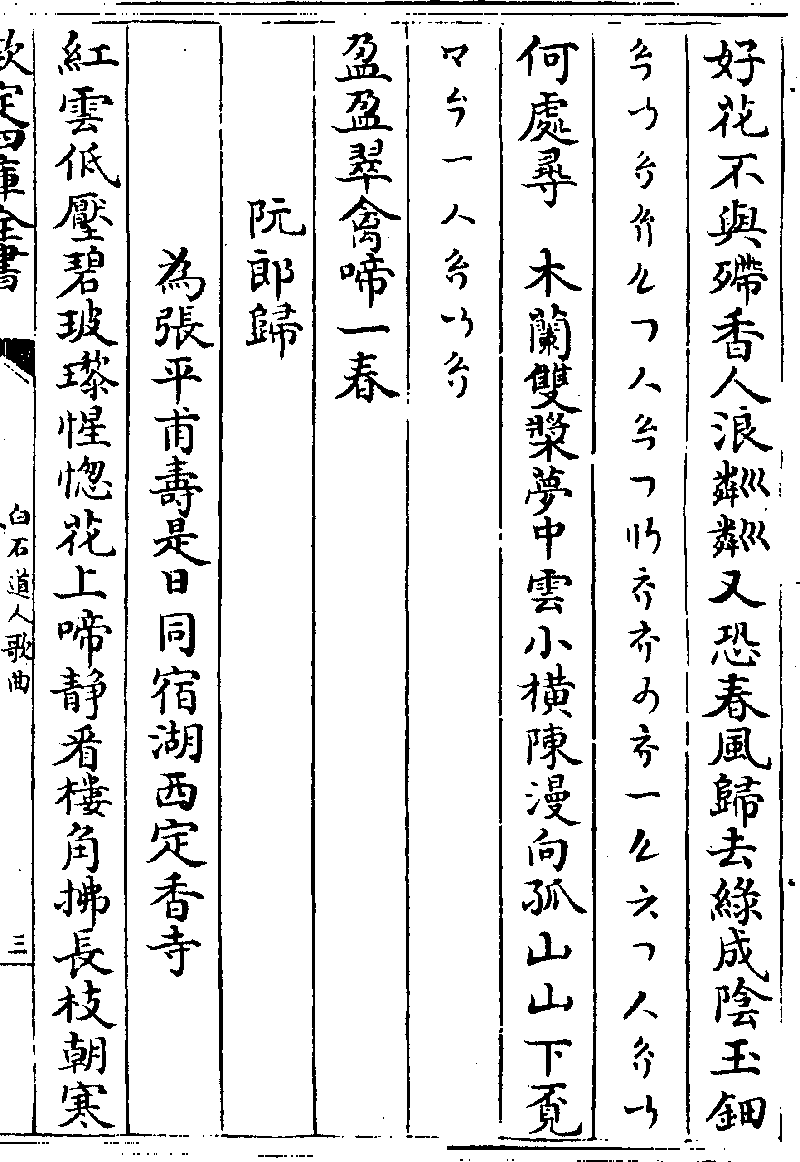 好花不與殢香人浪粼粼又恐春風歸去綠成陰玉鈿
何處尋　木蘭雙槳夢中雲小橫陳漫向孤山山下覔
盈盈翠禽啼一春
阮郎歸
為張平甫壽是日同宿湖西定香寺
紅雲低壓碧玻瓈惺惚花上啼静看樓角拂長枝朝寒
欽定四庫全書
白石道人歌曲
三